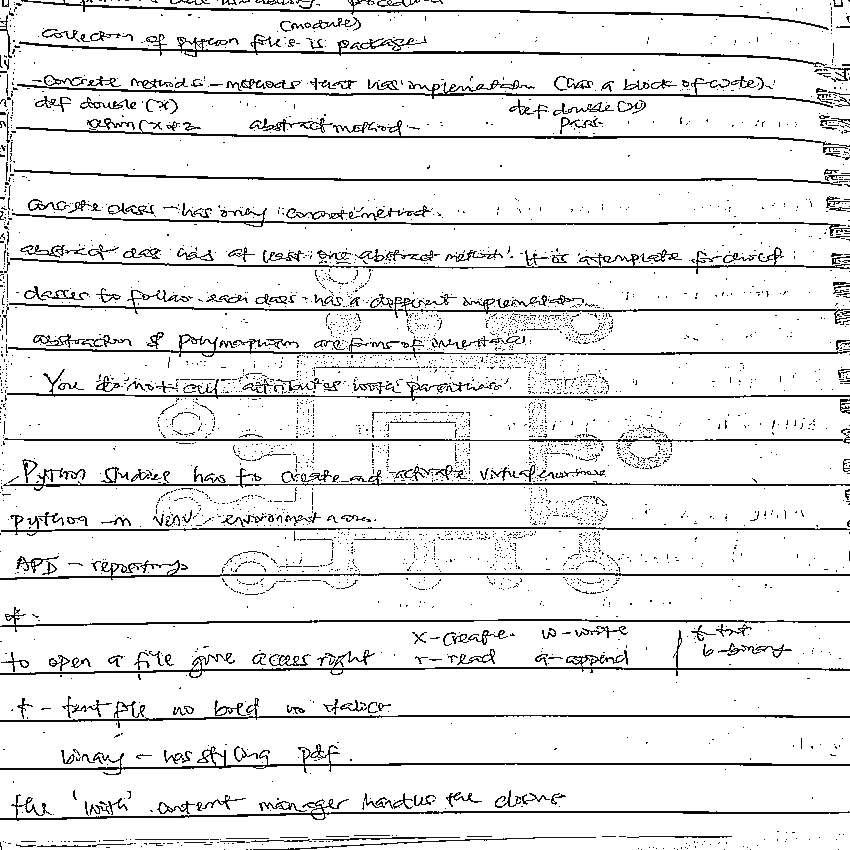 (module)
collection of python files is package
- Concrete methods - methods that has implementation (has a block of code).
def double (x) def double (x)
return x * 2 abstract method - pass
concrete class - has only concrete method.
abstract class has at least one abstract method. It is a template for derived
classes to follow. each class has a different implementation
abstraction & polymorphism are forms of inheritance.
You do not call attributes with parenthesis.
Python studies has to create and activate virtual
python -m venv environment name.
API - repository
x-create. w-write t-txt
to open a file give access right r-read a-append b-binary
t - text file no bold no italics
binary - has styling pdf.
the 'with' content manager handles the closing